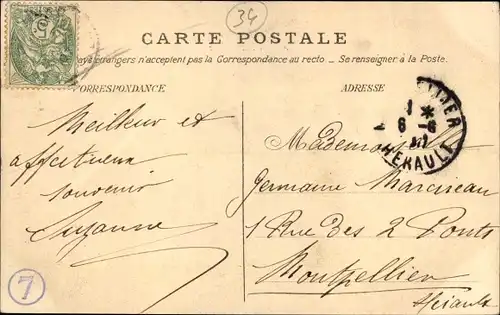 34
CARTE POSTALE
pays étrangers n'acceptent pas la Correspondance au recto _ Se renseigner à la Poste.
CORRESPONDANCE
Meilleur et
affectueux
souvenir
Suzanne
7
ADRESSE
HERAULT
Mademoiselle
Germaine Marcireau
1 Rue des 2 Ponts
Montpellier
Hérault